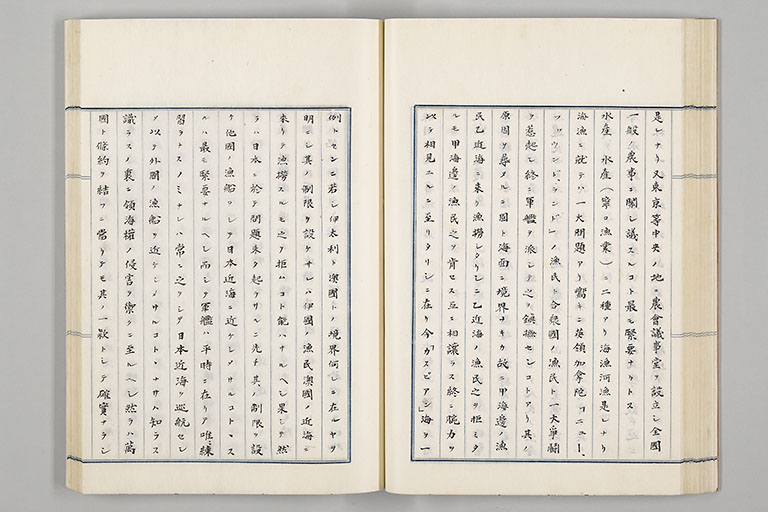 是レナリ又東京等中央ノ地ニ農會議事堂ヲ設立シ全國
一般ノ農事ニ關シ議スルコト最モ緊要ナリトス
水産ノ水産(寧ロ漁業)ニ二種アリ海漁河漁是レナリ
海漁ニ就テハ一大問題アリ嚮キニ英領加拿陀「ニュー、
ファウンド、ランド」ノ漁民ト合衆國ノ漁民ト一大爭鬪
ヲ惹起シ終ニ軍艦ヲ派シテ之ヲ鎮撫セシコトアリ其ノ
原因ヲ尋ヌルニ國ト海面ニ境界ナキカ故ニ甲海邉ノ漁
民乙近海ニ來リ漁撈シタリシニ乙近海ノ漁民之ヲ拒ミタ
ルモ甲海邉ノ漁民之ヲ肯セス互ニ相讓ラス終ニ腕力ヲ
以テ相見ユルニ至リタリシニ在リ今「カスピアン」海ヲ一
例トセンニ若シ伊太利ト澳國トノ境界何レニ在ルヤヲ
明ニシ其ノ制限ヲ設ケサレハ伊國ノ漁民澳國ノ近海ニ
來リテ漁撈スルモ之ヲ拒ムコト能ハサルヘシ果シテ然
ラハ日本ニ於テ問題未タ起ラサルニ先チ其ノ制限ヲ設
ケ他國ノ漁船ヲシテ日本近海ニ近ケシメサルコトヽス
ルハ最モ緊要ナルヘシ而シテ軍艦ハ平時ニ在リテ唯練
習ヲナスノミナレハ常ニ之ヲシテ日本近海ヲ巡航セシメ
以テ外國ノ漁船ヲ近ケシメサルコトヽナサハ知ラス
識ラスノ裏ニ領海權ノ侵害ヲ禦クニ至ルヘシ然ラハ萬
國ト條約ヲ結フニ當リテモ其ノ一款トシテ確實ナラシ